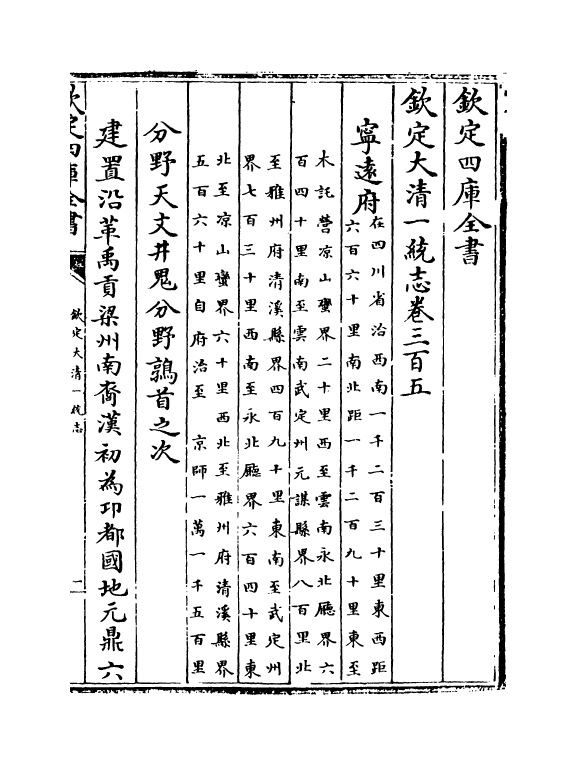 欽定四庫全書
欽定大清一統志卷三百五
寧遠府
在四川省治西南一千二百三十里東西距
六百六十里南北距一千二百九十里東至
木託營凉山蠻界二十里西至雲南永北廳界六
百四十里南至雲南武定州元謀縣界八百里北
至雅州府清溪縣界四百九十里東南至武定州
界七百三十里西南至永北廳界六百四十里東
北至凉山蠻界六十里西北至雅州府清溪縣界
五百六十里自府治至 京師一萬一千五百里
分野天文井鬼分野鶉首之次
建置沿革禹貢梁州南裔漢初為邛都國地元鼎六
欽定四庫全書
欽定大清一統志
二